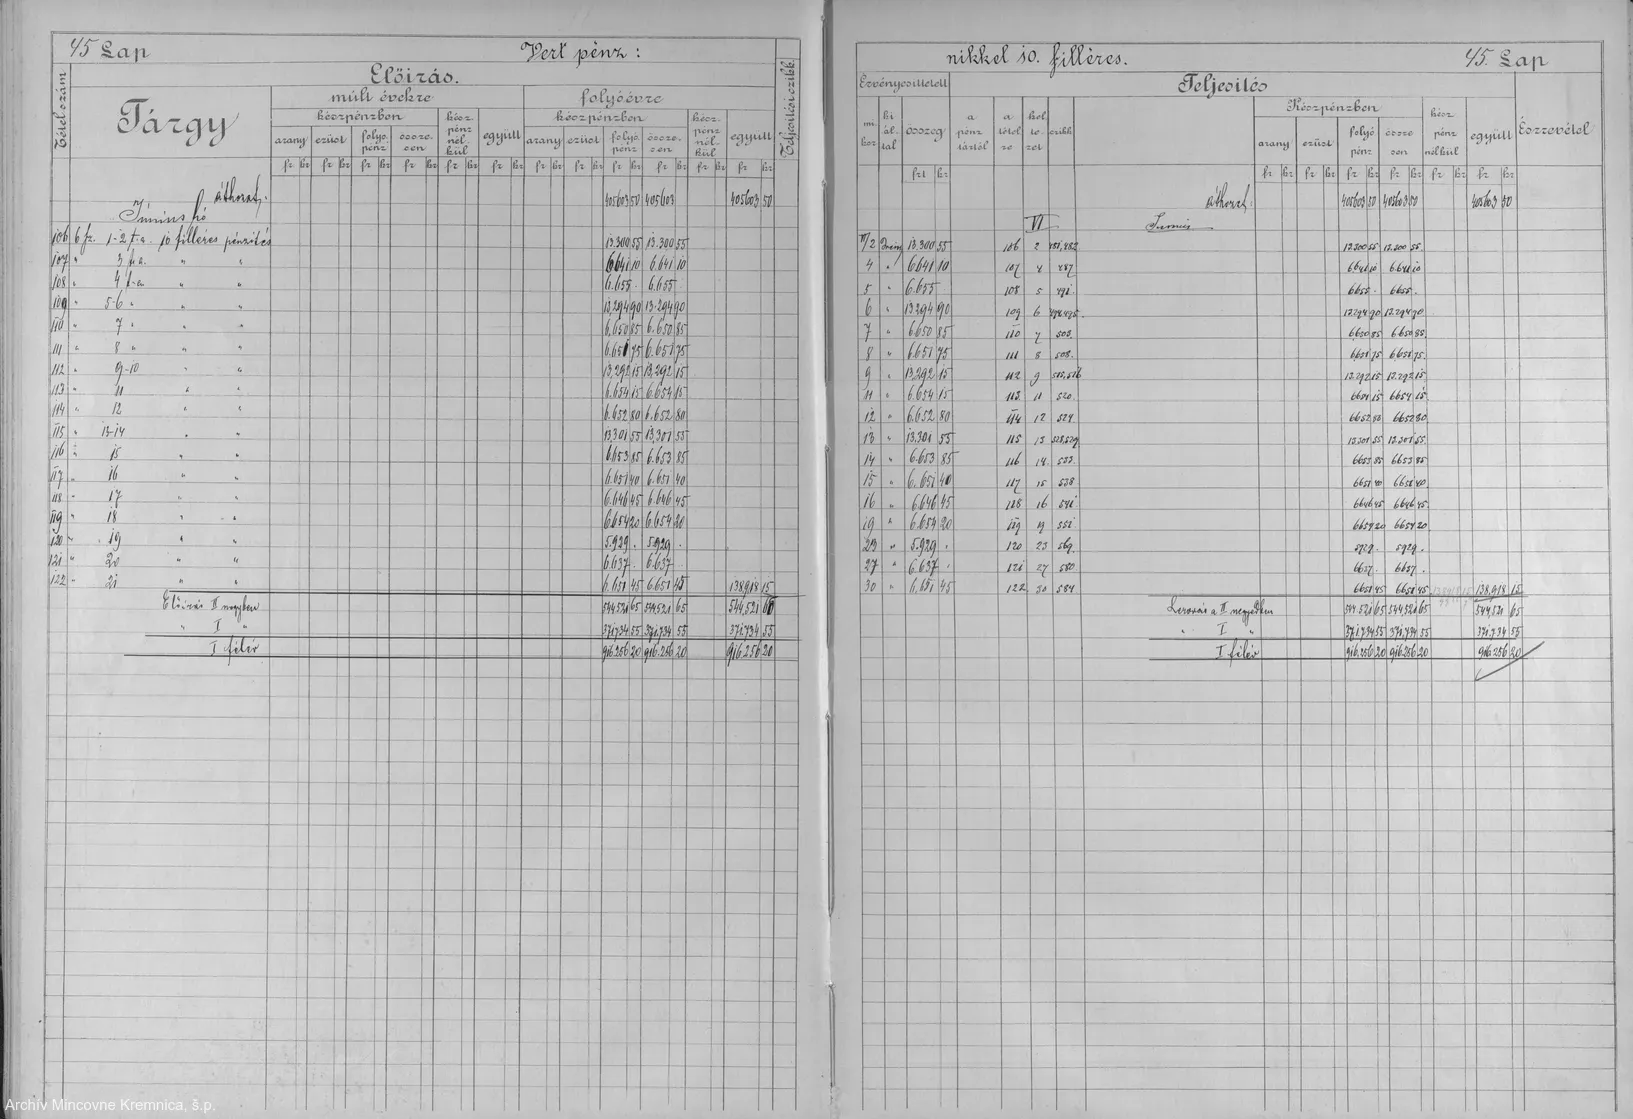 45 Lap Vert pénz:
Előirás.
Tételszám
Tárgy
múlt évekre
folyóévre
Teljesitési czikk.
készpénzben
kész pénz nélkül
együtt
készpénzben
kész pénz nélkül
együtt
arany ezüst folyó pénz össze sen
arany ezüst folyó pénz össze sen
fr kr fr kr fr kr fr kr fr kr fr kr fr kr fr kr fr kr fr kr fr kr fr kr
áthozat. 405603 50 405603 405603 50
Június hó
106 6 fz. 1-2 t.a. 10 filléres pénzítés 13.300 55 13.300 55
107 " 3 t.a. " " 6.641 10 6.641 10
108 " 4 t.a " " 6.655 . 6.655 .
109 " 5-6 " " " 13.294 90 13.294 90
110 " 7 " " " 6.650 85 6.650 85
111 " 8 " " " 6.651 75 6.651 75
112 " 9-10 " " 13.292 15 13.292 15
113 " 11 " " 6.654 15 6.654 15
114 " 12 " " 6.652 80 6.652 80
115 " 13-14 " " 13.301 55 13.301 55
116 " 15 " " 6.653 85 6.653 85
117 " 16 " " 6.651 40 6.651 40
118 " 17 " " 6.646 45 6.646 45
119 " 18 " " 6.654 20 6.654 20
120 " 19 " " 5.929 . 5.929 .
121 " 20 " " 6.637 . 6.637 .
122 " 21 " " 6.651 45 6.651 45 138,918 15
Előirás II negyben 544521 65 544521 65 544,521 65
" I " 371,734 55 371,734 55 371,734 55
I félév 916.256 20 916.256 20 916.256 20
nikkel 10. filléres. 45. Lap
Érvényesittetett
Teljesités
mi kor
ki ál- tal
összeg
a pénz tártól
a tétel re
kel te- zet
czikk
Készpénzben
kész pénz nélkül
együtt
Észrevétel
arany ezüst folyó pénz össze sen
frt kr fr kr fr kr fr kr fr kr fr kr fr kr
áthozat. 405603 50 405603 50 405603 50
VI Junius
VI/2 13.300 55 106 2 481,482 13.300 55 13.300 55
4 " 6.641 10 107 4 487 6641 10 6641 10
5 " 6.655 . 108 5 491. 6655 . 6655 .
6 " 13.294 90 109 6 13.294 90 13.294 90
7 " 6.650 85 110 7 503. 6650 85 6650 85
8 " 6.651 75 111 8 508. 6651 75 6651 75
9 " 13.292 15 112 9 515,516 13.292 15 13.292 15
11 " 6.654 15 113 11 520. 6654 15 6654 15
12 " 6.652 80 114 12 524 6652 80 6652 80
13 " 13.301 55 115 13 528,529 13.301 55 13.301 55
14 " 6.653 85 116 14 533. 6653 85 6653 85
15 " 6.651 40 117 15 538 6651 40 6651 40
16 " 6.646 45 118 16 541 6646 45 6646 45
19 " 6.654 20 119 19 551 6654 20 6654 20
23 " 5.929 . 120 23 569. 5929 . 5929 .
27 " 6.637 . 121 27 580 6637 . 6637 .
30 " 6.651 45 122 30 584 6651 45 6651 45 138,918 15
Lerovás a II negyedben 544.521 65 544521 65 544,521 65
" I " 371,734 55 371,734 55 371,734 55
I félév 916.256 20 916.256 20 916.256 20
Archív Mincovne Kremnica, š.p.